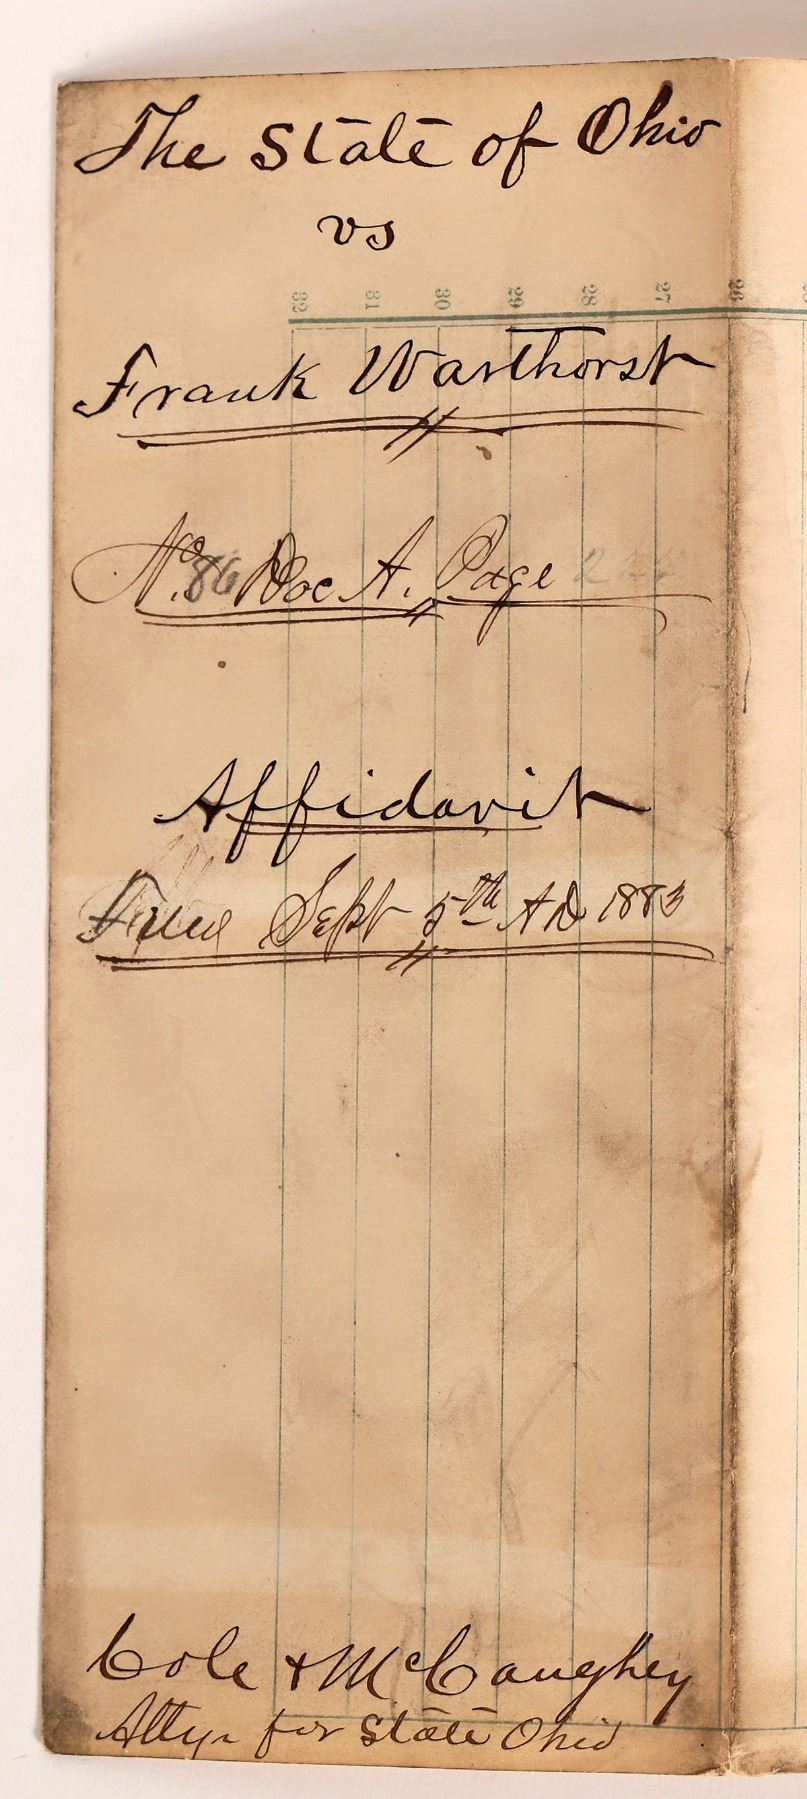 The State of Ohio
vs
32 31 30 29 28 27 26
Frank Warthorst
No. 86 Doc A. Page
Affidavit
Filed Sept 5th AD 1883
Cole & McCaughey
Attys for State Ohio